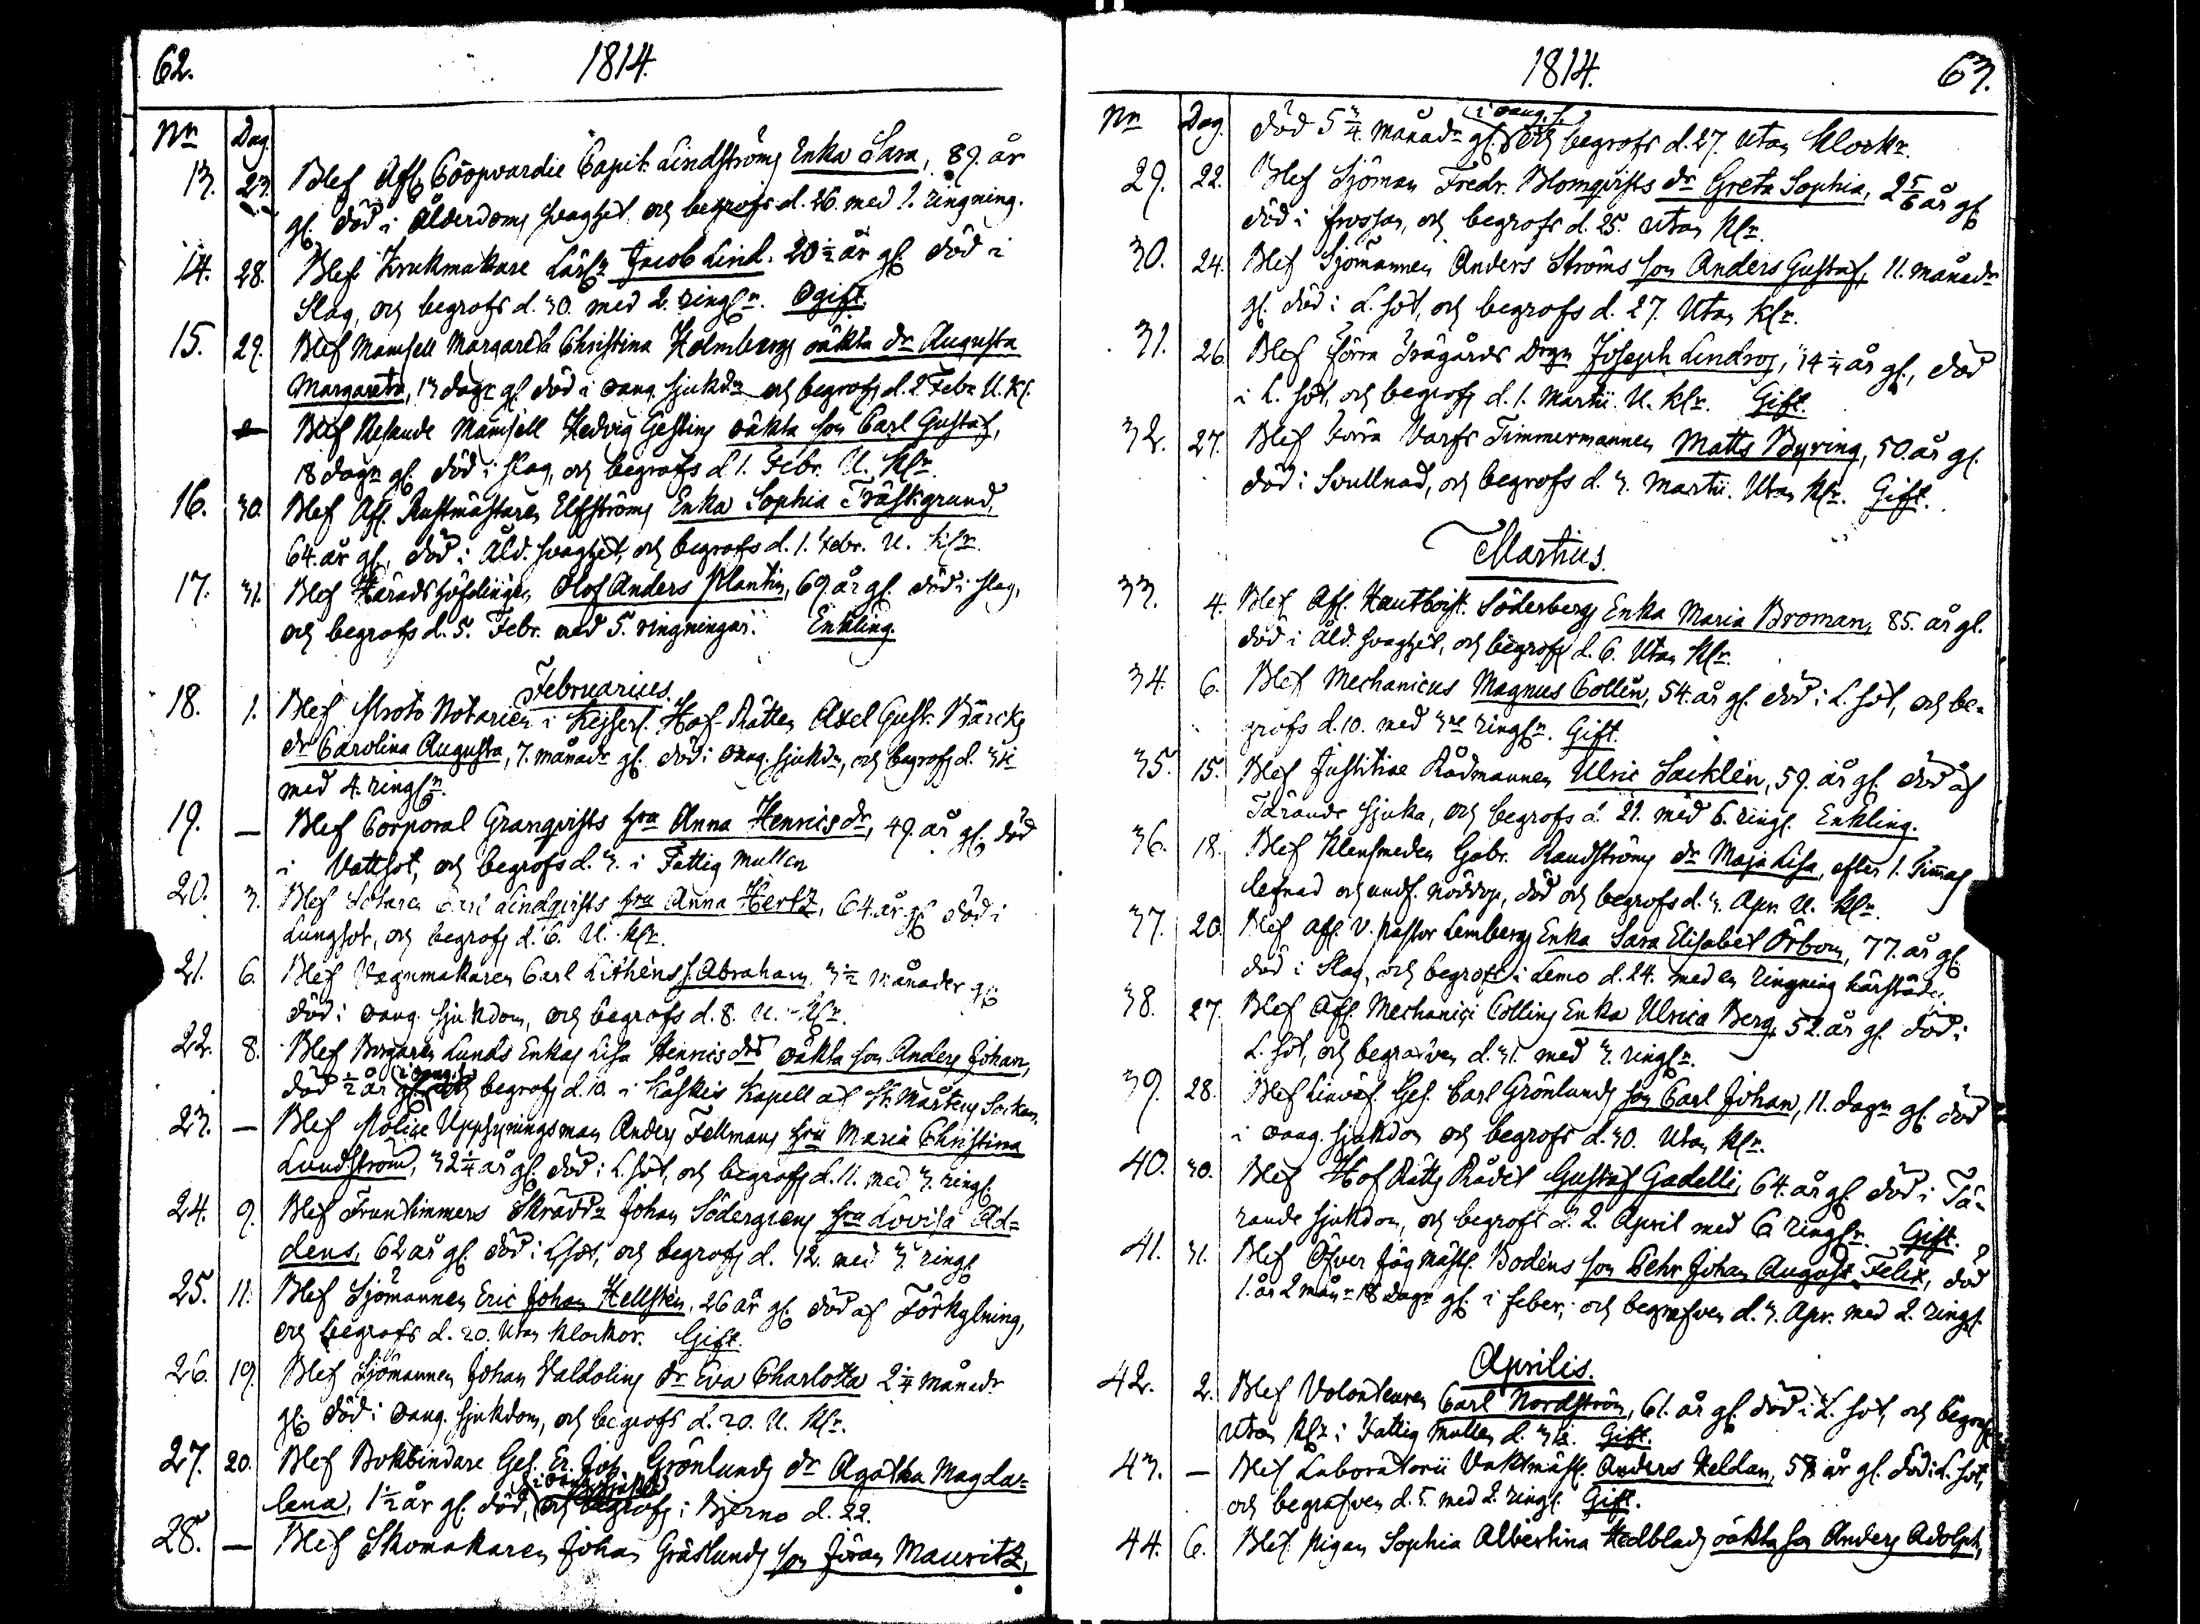 62. 1814.
Nr Dag
13. 23. Blef Afl. Coopvardie Capit. Lindströms Enka Sara, 89. år
gl. död i Ålderdoms svaghet och begrofs d. 26. med 1. ringning.
14. 28. Blef Krukmakare Lärl:n Jacob Lind. 20 1/2 år gl. död i
Slag, och begrofs d. 30. med 2. ringn:r. Ogift.
15. 29. Blef Mamsell Margaretha Christina Holmbergs oäkta dr Augusta
Margareta, 13 dagr gl. död i oang. sjukdm och begrofs d. 2 Febr. U. Kl.
Blef Resande Mamsell Hedvig Geslins oäkta son Carl Gustaf,
18 dagr gl. död i slag, och begrofs d. 1. Febr. U. Klr.
16. 30. Blef Afl. Rustmästaren Elfströms Enka Sophia Träskgrund,
64. år gl. död i Åld. svaghet, och begrofs d. 1. Febr. U. Klr.
17. 31. Blef Häradshöfdingen Olof Anders Plantin, 69. år gl. död i slag,
och begrofs d. 5. Febr. med 5. ringningar. Enkling.
Februarius.
18. 1. Blef Proto Notarien i Kejserl. Hof-Rätten Axel Gust. Bärcks
dr Carolina Augusta, 7. månadr gl. död i oang. sjukdm, och begrofs d.
med 4. ringn:r.
19. — Blef Corporal Granqvists hru Anna Henricsdr, 49. år gl. död
i Vattsot, och begrofs d. 3. i Fattig mullen
20. 3. Blef Lindqvists hru Anna Hertz, 64. år gl. död i
Lungsot, och begrofs d. 6. U. Klr.
21. 6. Blef Vagnmakaren Carl Lithéns s. Abraham, 3 1/2 månader gl.
död i oang. sjukdom, och begrofs d. 8. U. Klr.
22. 8. Blef Borgaren Lunds Enkas Lisa Henricsdrs oäkta son Anders Johan,
död 1/2 år gl. i oang. s. och begrofs d. 10. i Kåskis Kapell af St. Mårtens Socken.
23. — Blef Police Uppsyningsman Anders Fellmans hru Maria Christina
Lundström, 32 1/4 år gl. död i L. sot, och begrofs d. 11. med 3. ringn.
24. 9. Blef Fruntimmers Skräddr Johan Södergrens hru Lovisa Ad=
dens, 62 år gl. död i L. sot, och begrofs d. 12. med 3. ringn.
25. 11. Blef Sjömannen Eric Johan Hellstén, 26 år gl. död af Förkylning,
och begrofs d. 20. Utan Klockor. Gift.
26. 19. Blef Sjömannen Johan Valdolins dr Eva Charlotta 2 1/4 månadr
gl. död i oang. sjukdom, och begrofs d. 20. U. Klr.
27. 20. Blef Bokbindare Ges. Er. Joh. Grönlunds dr Agatha Magda=
lena, 1 1/2 år gl. död, och begrofs i Bjerno d. 22.
28. — Blef Skomakaren Johan Gräslunds son Jöran Mauritz,
1814. 63.
Nr Dag.
död 5 3/4. månadr gl. i oang. s. och begrofs d. 27. utan Klockr.
29. 22. Blef Sjöman Fredr. Blomqvists dr Greta Sophia, 2 5/6 år gl.
död i frossan, och begrofs d. 25. utan Klr.
30. 24. Blef Sjömannen Anders Ströms son Anders Gustaf, 11. månadr
gl. död i L. sot, och begrofs d. 27. Utan Klr.
31. 26. Blef förra Trägårds Drgn Joseph Lindros, år gl., död
i L. sot, och begrofs d. 1. Martii. U. Klr. Gift.
32. 27. Blef Förra Varfs Timmermannen Matts Byring, 50. år gl.
död i Svullnad, och begrofs d. 3. Martii. Utan Klr. Gift.
Martius.
33. 4. Blef Afl. Hautboist. Söderbergs Enka Maria Broman, 85. år gl.
död i Åld. svaghet, och begrofs d. 6. Utan Klr.
34. 6. Blef Mechanicus Magnus Collin, 54. år gl. död i L. sot, och be=
grofs d. 10. med 3ne ringn:r. Gift.
35. 15. Blef Justitiae Rådmannen Ulric Sacklén, 59. år gl. död af
Tärande sjuka, och begrofs d. 21. med 6. ringn. Enkling.
36. 18. Blef Klensmeden Gabr. Randströms dr Maja Lisa, efter 1. Timmas
lefnad och undf. nöddop, död och begrofs d. 3. Apr. U. Klr.
37. 20. Blef Afl. V. Pastor Lembergs Enka Sara Elisabet Örbom, 77. år gl.
död i Slag, och begrofs i Lemo d. 24. med en ringning härstäd.
38. 27. Blef Afl. Mechanici Collins Enka Ulrica Berg, 52. år gl. död i
L. sot, och begrafven d. 31. med 3. ringn:r.
39. 28. Blef Linväf. Ges. Carl Grönlunds son Carl Johan, 11. dagr gl. död
i oang. sjukdom och begrofs d. 30. Utan Klr.
40. 30. Blef HofRätts Rådet Gustaf Gadelli, 64. år gl. död i Tä=
rande sjukdom, och begrofs d. 2. April med 6 ringn:r. Gift.
41. 31. Blef Öfver Jägmäst. Bodéns son Pehr Johan August Felix, död
1. år 2 mån:r 18 dagr gl. i feber, och begrafven d. 3. Apr. med 2. ringn.
Aprilis.
42. 2. Blef Volonteuren Carl Nordström, 61. år gl. död i L. sot, och begrofs
utan Klr i Fattig mullen d. Gift.
43. — Blef Laboratorii Vaktmäst. Anders Heldan, 58 år gl. död i L. sot,
och begrafven d. 5. med 2. ringn. Gift.
44. 6. Blef Pigan Sophia Albertina Hedblads oäkta son Anders Adolph,